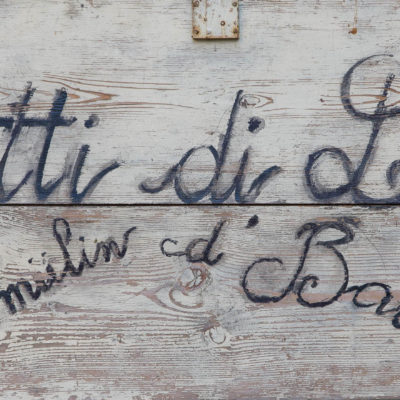 tti di L
mülin d' Ba